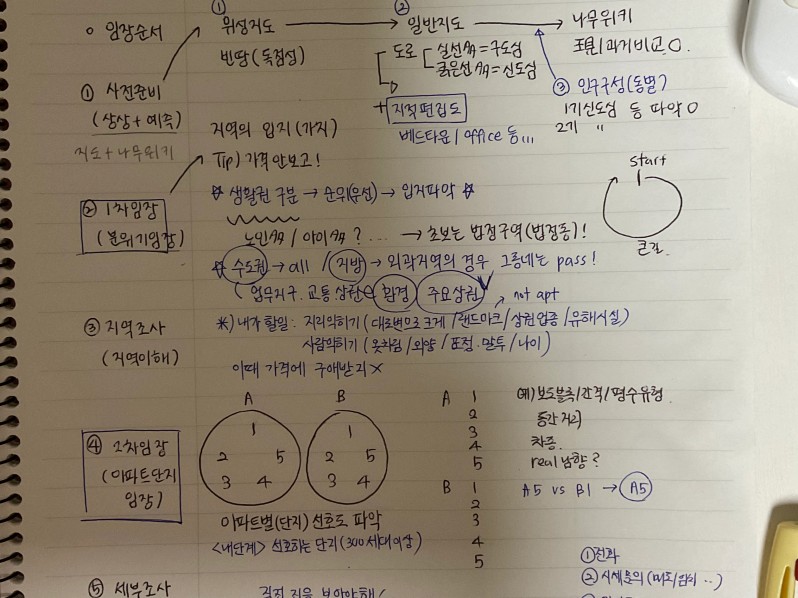 ○ 임장순서
① 위성지도 → ② 일반지도 → 나무위키
빈땅 (독점성)
도로 [ 실선多 = 구도심
굵은선多 = 신도심
+ 지적편집도
베드타운 / office 등...
과거비교 ○.
③ 인구구성 (동별)
1기신도심 등 파악 ○
2기 〃
① 사전준비
(상상 + 예측)
지도 + 나무위키
지역의 입지 (가치)
Tip) 가격 안보고!
② 1차임장
(분위기임장)
☆ 생활권 구분 → 순위(우선) → 입지파악 ☆
노인多 / 아이多 ? ... → 초보는 법정구역 (법정동)!
☆ 수도권 → all / 지방 → 외곽지역의 경우 그동네는 pass!
(업무지구. 교통 상권 환경 주요상권
not apt
start
큰길
③ 지역조사
(지역이해)
*) 내가 할일 : 지리익히기 (대로변으로 크게 / 랜드마크 / 상권업종 / 유해시설)
사람익히기 (옷차림 / 외양 / 표정. 말투 / 나이)
이때 가격에 구애받지 X
④ 2차임장
(아파트단지
임장)
A B
1
2 5
3 4
1
2 5
3 4
아파트별 (단지) 선호도 파악
<내단계> 선호하는 단지 (300세대이상)
A 1
2
3
4
5
예) 보도블록 / 간격 / 평수유형
동간거리
차종
real 남향?
B 1
2
3
4
5
A5 vs B1 → A5
⑤ 세부조사
직접 집을 보아야해!
① 전화
② 시세문의